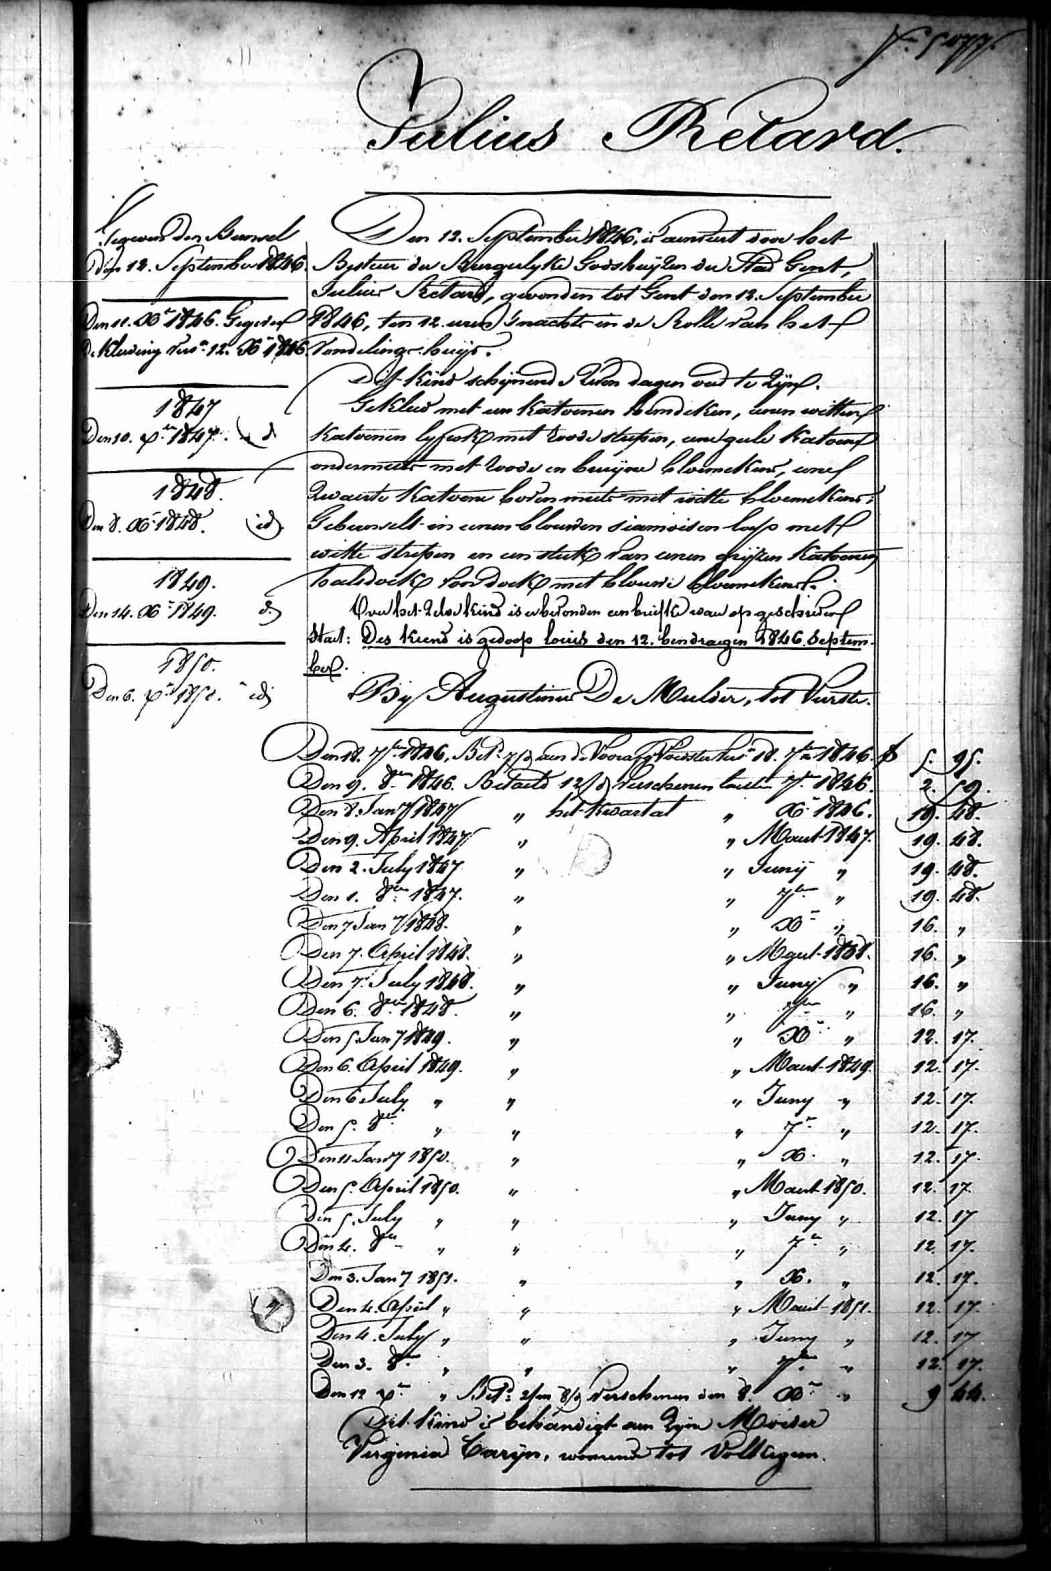 Julius Retard.
Gegeven den Bunsel
den 12. September 1846.
Den 11. Xbre 1846. Gegeven
de Kleeding vers. 12. Xb 1846.
1847
Den 10. Xbre 1847. id
1848.
Den 8. Xbre 1848. id
1849.
Den 14. Xbre 1849. id
1850.
Den 6. Xbre 1850. " id
Den 12. September 1846, is aenveert door het
Bestier der Burgerlyke Godshuijzen der Stad Gent,
Julius Retard, gevonden tot Gent den 12. September
1846, ten 12. uren 's nachts in de Rolle van het
Vondelings-huijs.
Dit kind schijnende twee dagen oud te zijn.
Gekleed met een katoenen hemdeken, eenen witten
katoenen lyfrok met roode strepen, eene geele katoene
ondermuts met roode en bruyne bloemekens, eene
zwarte katoene bovenmuts met witte bloemekens.
Gebunselt in eenen blauwen siamoisen loop met
witte strepen en een stuk van eenen grijsen katoenen
halsdoek, vondoek met blauwe bloemekens.
Over het zelve kind is gevonden een briefke waer op geschreven
staet: Des kiend is gedoop louis den 12. bendraegen 1846. Septem-
ber.
Bij Augustinus De Mulder, tot Vurste.
Den 18. 7bre 1846. Bet. 7/3 aen de Vooraf Voedster vers. 18. 7bre 1846. f 5. 95.
Den 9. 8bre 1846. Betaeld 12/3 verschenen laetsten 7bre 1846. 2. 59.
Den 8. Jany 1847 " het kwartael " Xb 1846. 19. 48.
Den 9. April 1847 " " Maert 1847. 19. 48.
Den 2. July 1847 " " Junij " 19. 48.
Den 1. 8bre 1847. " " 7bre " 19. 48.
Den 7 Jany 1848. " " Xb " 16. "
Den 7. April 1848. " " Maert 1848. 16. "
Den 7. July 1848. " " Junij " 16. "
Den 6. 8bre 1848. " " 7bre " 16. "
Den 5 Jany 1849. " " Xb " 12. 17.
Den 6. April 1849. " " Maert 1849. 12. 17.
Den 6 July " " " Juny " 12. 17.
Den 5. 8bre " " " 7b " 12. 17.
Den 11 Jany 1850. " " Xb. " 12. 17
Den 5. April 1850. " " Maert 1850. 12. 17
Den 5. July " " " Juny " 12. 17
Den 4. 8bre " " " 7b " 12. 17.
Den 3. Jany 1851. " " Xb. " 12. 17.
Den 4. April " " " Maert 1851. 12. 17.
Den 4. July " " " Juny " 12. 17
Den 3. 8bre " " " 7bre " 12. 17.
Den 12 Xbre " Bet. 2/m 8/3 verschenen den 8. Xbre " 9 44.
Dit kind is behandigt aen zijne Moeder
Virginia Caryn, woonende tot Volkegem.